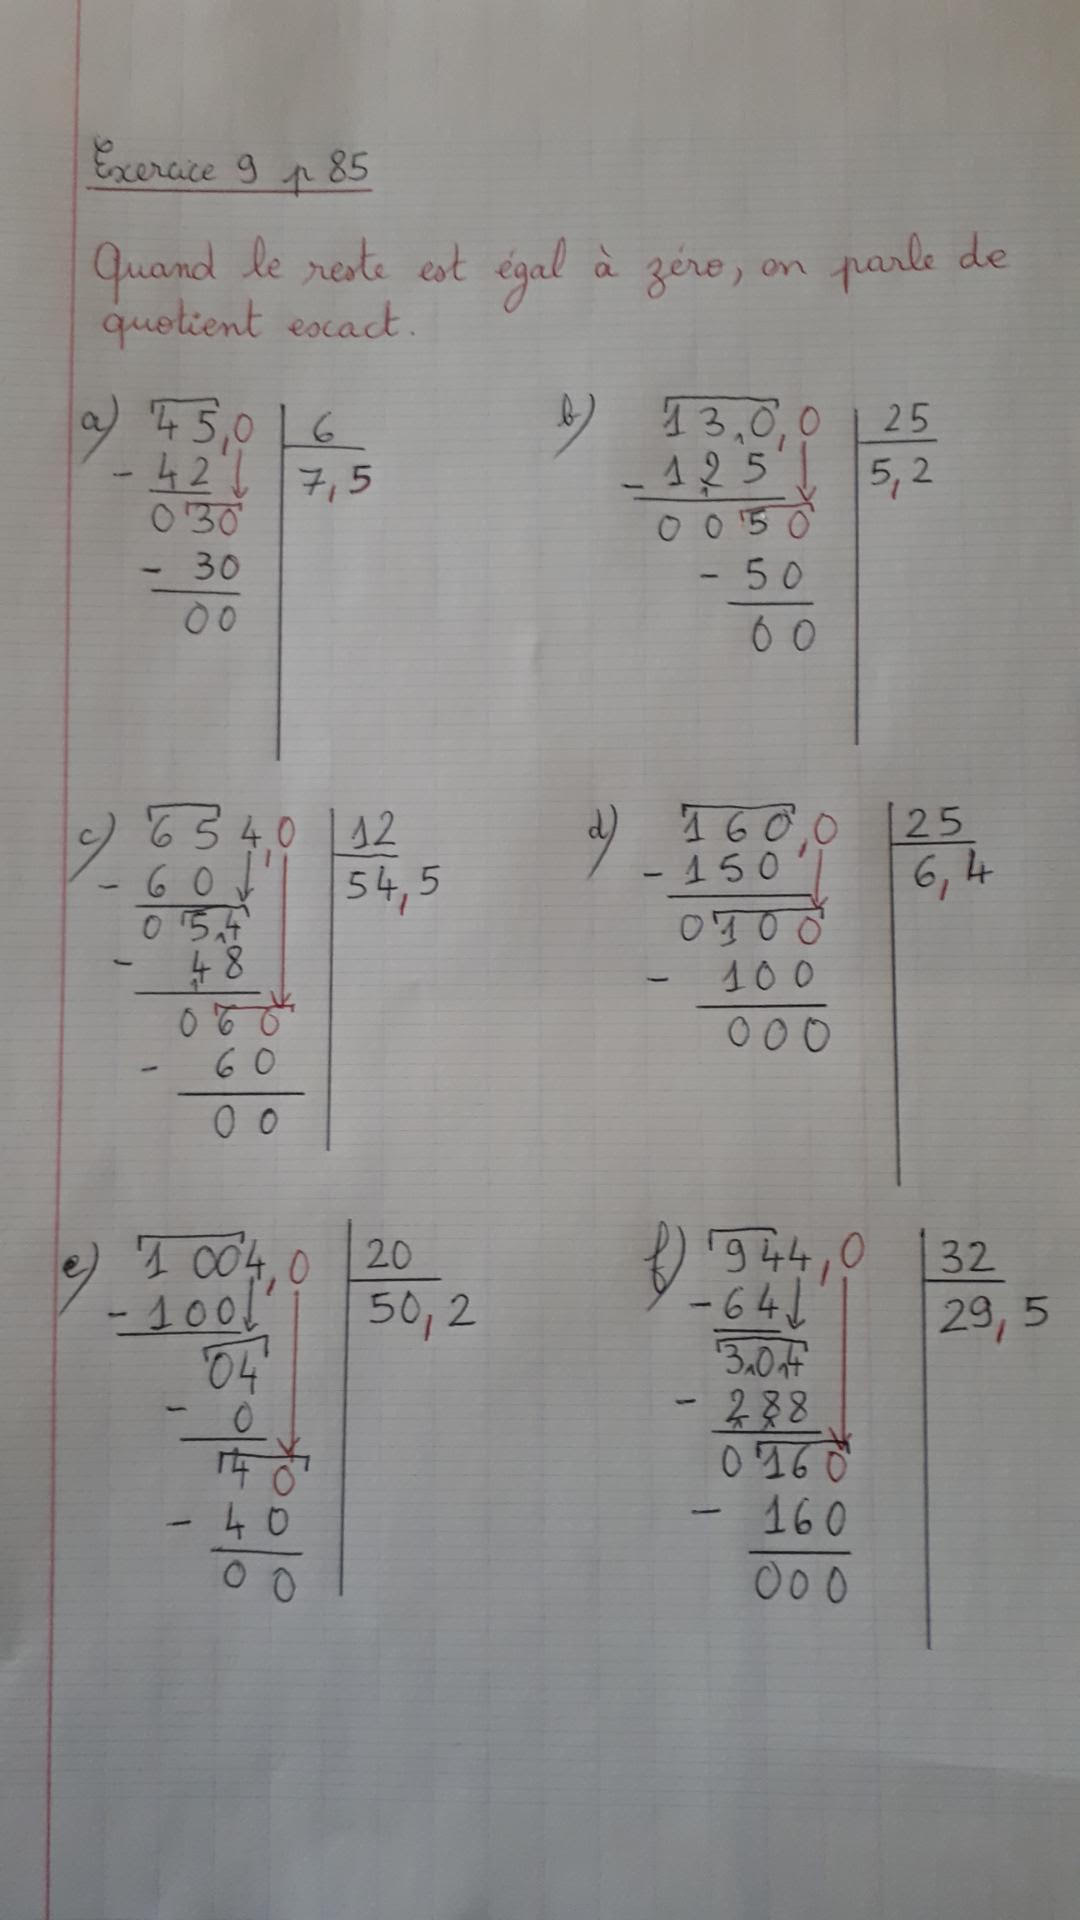 Exercice 9 p 85
Quand le reste est égal à zéro, on parle de
quotient exact.
a) 45,0 | 6
- 42 | 7,5
030
- 30
00
b) 130,0 | 25
- 125 | 5,2
0050
- 50
00
c) 654,0 | 12
- 60 | 54,5
054
- 48
060
- 60
00
d) 160,0 | 25
- 150 | 6,4
0100
- 100
000
e) 1004,0 | 20
- 100 | 50,2
04
- 0
40
- 40
00
f) 944,0 | 32
- 64 | 29,5
304
- 288
0160
- 160
000